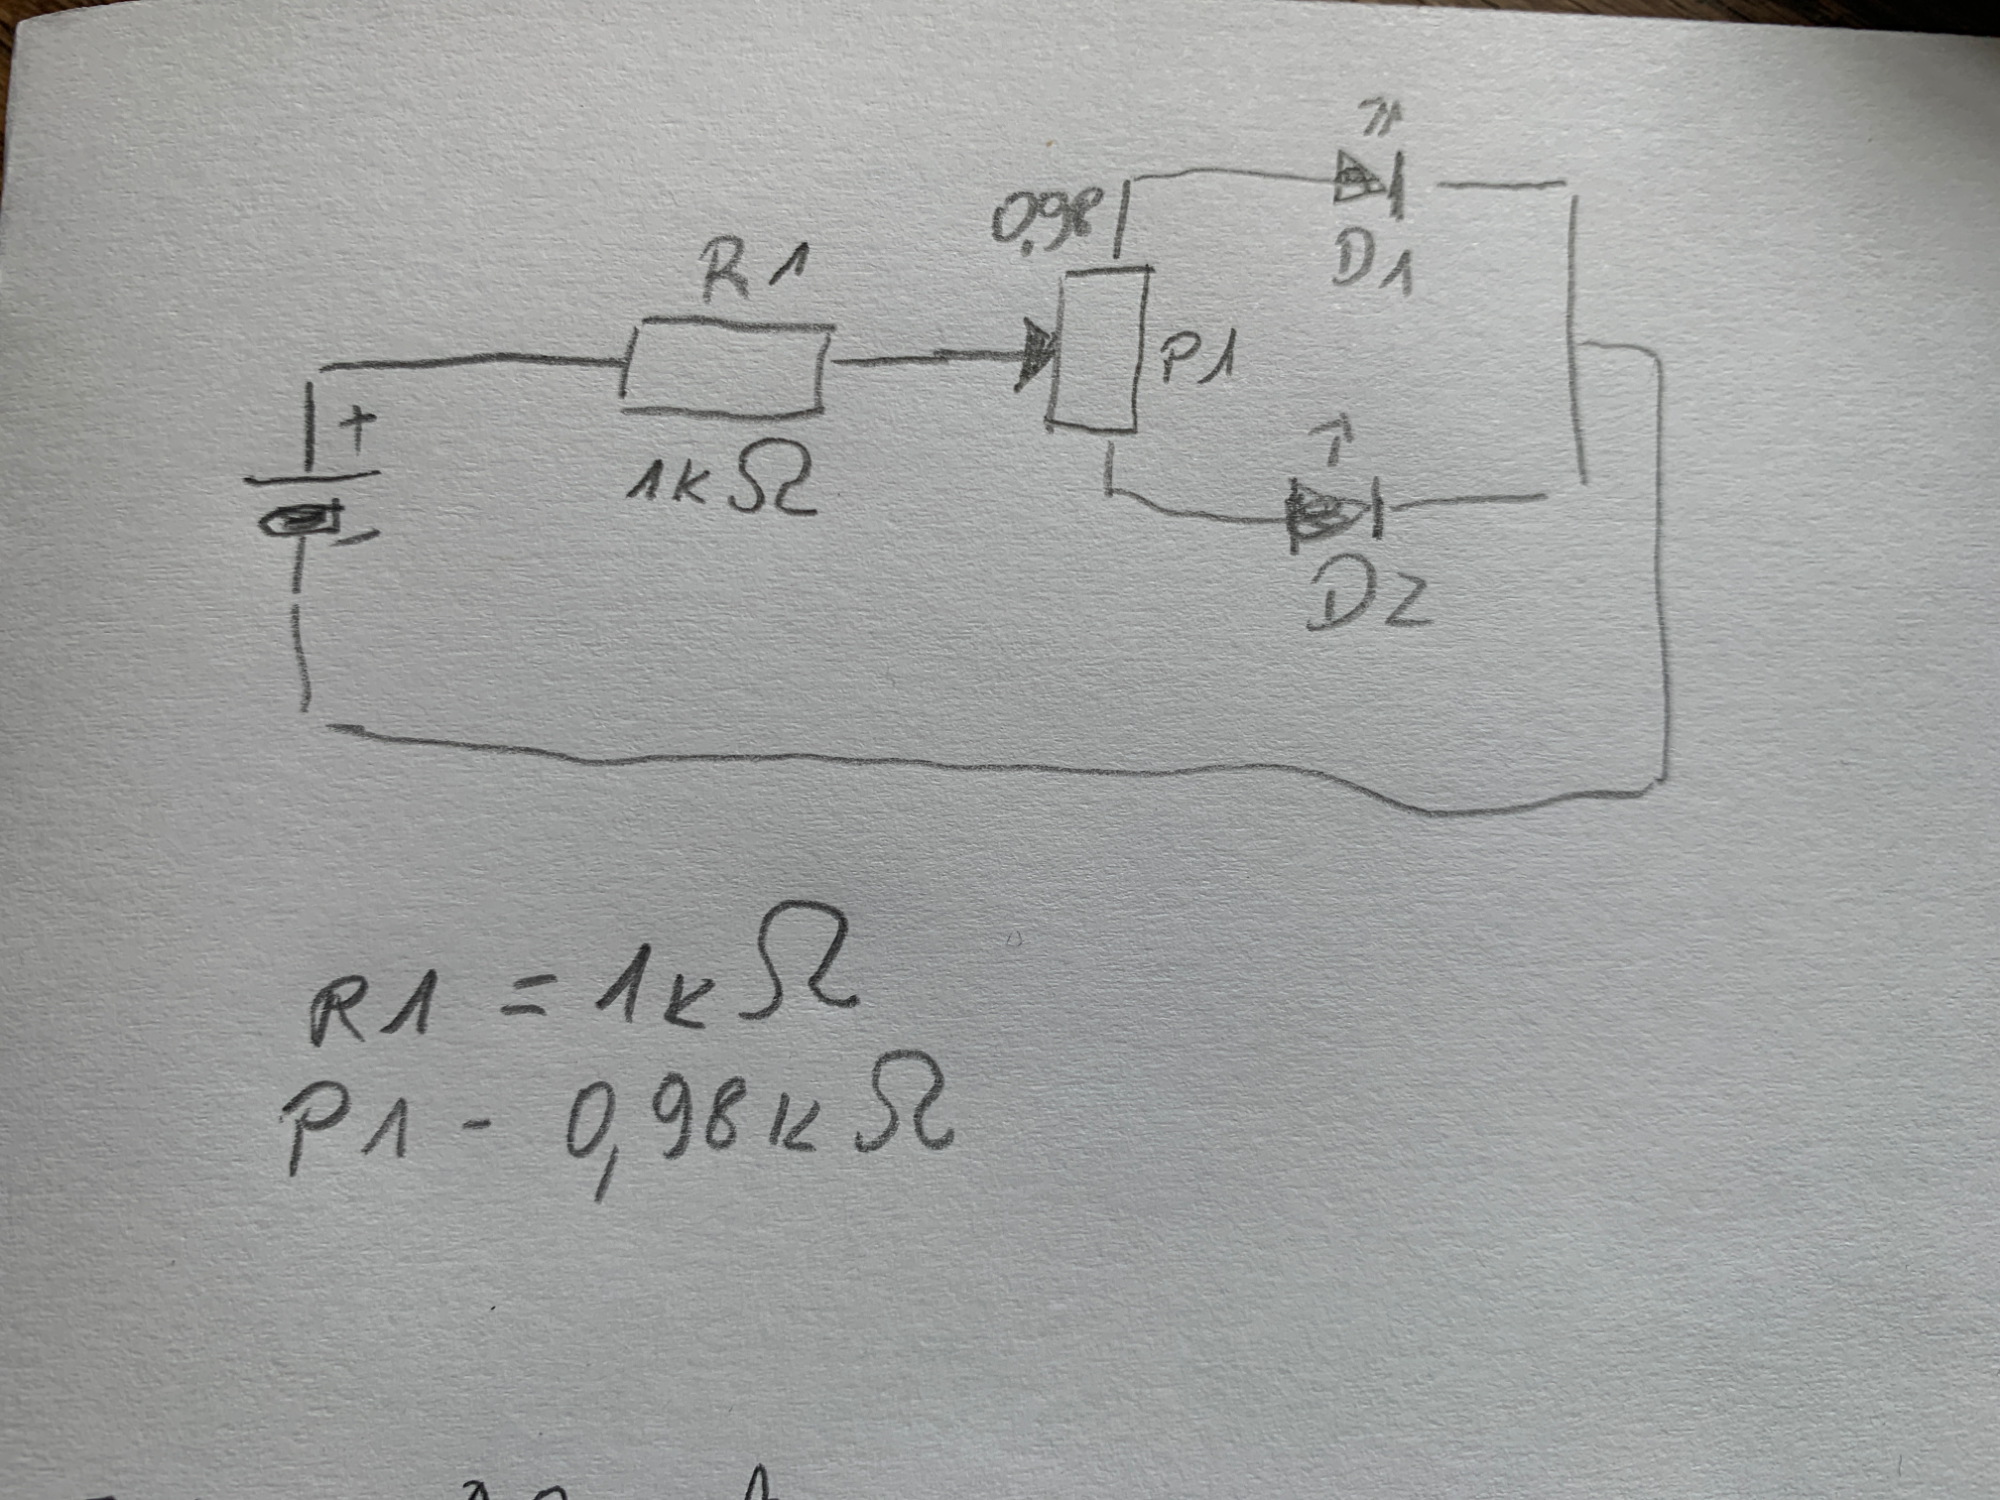 D1
0,98
R1
P1
+
1kΩ
-
D2
R1 = 1kΩ
P1 - 0,98kΩ